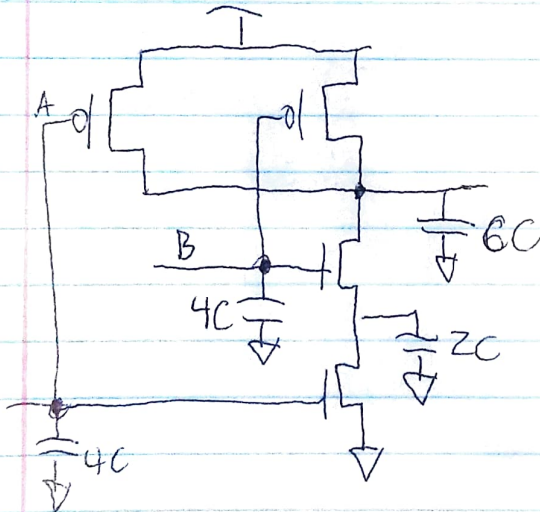 A
6C
B
4C
2C
4C